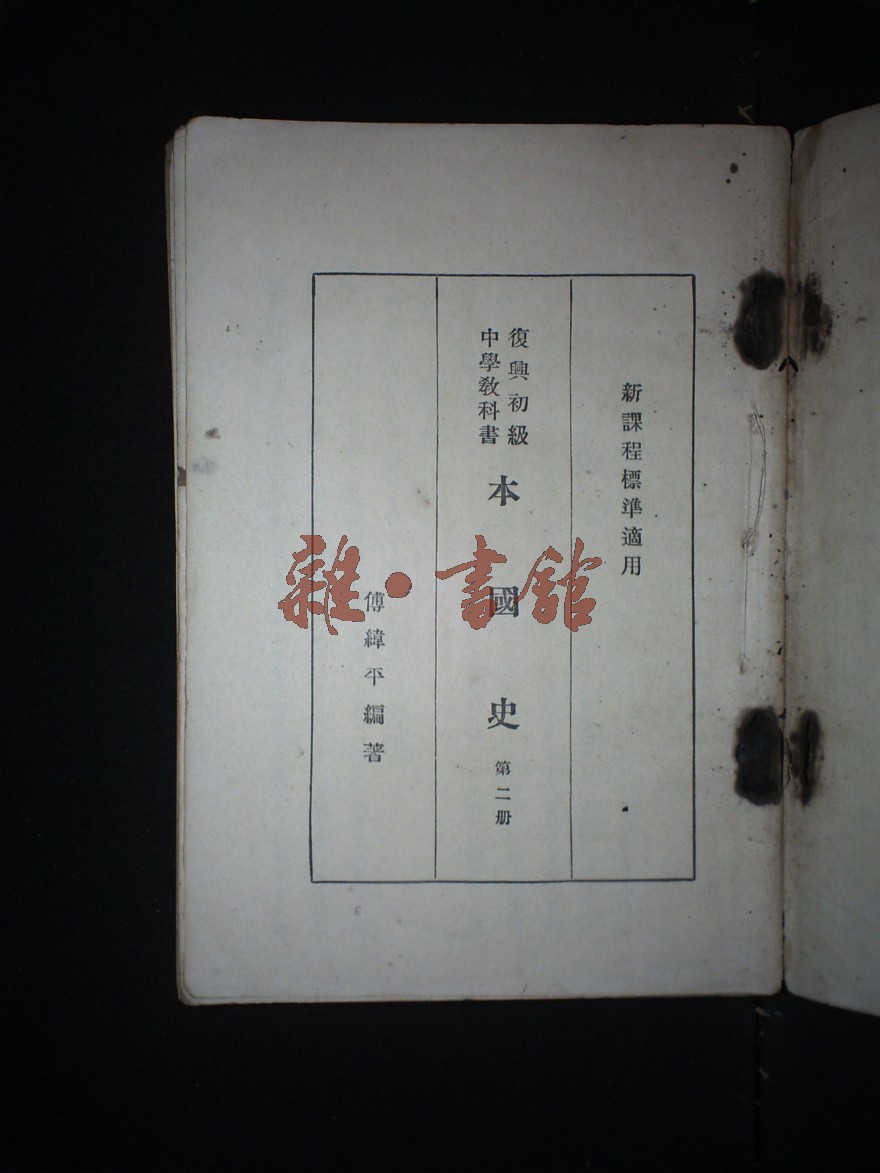 新課程標準適用
復興初級
中學教科書
本國史 第二册
傅緯平編著
雜·書館